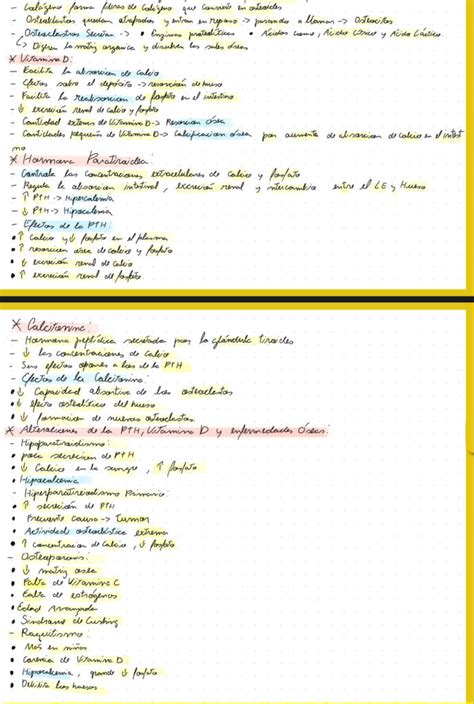 - Colágeno forma fibras de Colágeno que convierte en osteoides
- Osteoblastos quedan atrapados y entran en reposo -> pasando a llamar -> Osteocitos
- Osteoclastos Secretan -> • Enzimas proteolíticas • Ácidos como, Ácido Cítrico y Ácido Láctico.
↳ Digieren la matriz orgánica y disuelven las sales óseas
* Vitamina D:
- Facilita la absorción de Calcio
- Efectos sobre el depósito -> resorción de hueso
- Facilita la reabsorción de fosfato en el intestino
- ↓ excreción renal de calcio y fosfato
- Cantidad extrema de Vitamina D -> Resorción ósea
- Cantidades pequeña de Vitamina D -> Calcificación ósea por aumento de absorción de calcio en el intesti
no
* Hormona Paratiroidea:
- Controla las concentraciones extracelulares de calcio y fosfato
- Regula la absorción intestinal, excreción renal y intercambio entre el LE y Hueso
- ↑ PTH -> Hipercalcemia
- ↓ PTH -> Hipocalcemia
- Efectos de la PTH:
• ↑ Calcio y ↓ fosfato en el plasma
• ↑ resorción ósea de calcio y fosfato
• ↓ excreción renal de Calcio
• ↑ excreción renal de fosfato.
* Calcitonina:
- Hormona peptídica secretada por la glándula tiroides
- ↓ las concentraciones de calcio
- Sus efectos opones a los de la PTH
- Efectos de la Calcitonina:
• ↓ Capacidad absortiva de los osteoclastos
• ↓ efecto osteolítico del hueso
• ↓ formación de nuevos osteoclastos.
* Alteraciones de la PTH, Vitamina D y enfermedades Óseas:
- Hipoparatiroidismo:
• poca secreción de PTH
• ↓ Calcio en la sangre, ↑ fosfato
• Hipocalcemia
- Hiperparatiroidismo Primario:
• ↑ secreción de PTH
• Frecuente causa -> Tumor
• Actividad osteoclástica extrema
• ↑ concentración de Calcio, ↓ fosfato
- Osteoporosis:
• ↓ matriz ósea
• Falta de Vitamina C
• Falta de estrógenos
• Edad Avanzada
• Síndrome de Cushing
- Raquitismo:
• Más en niños
• Carencia de Vitamina D
• Hipocalcemia, grande ↓ fosfato
• Debilita los huesos